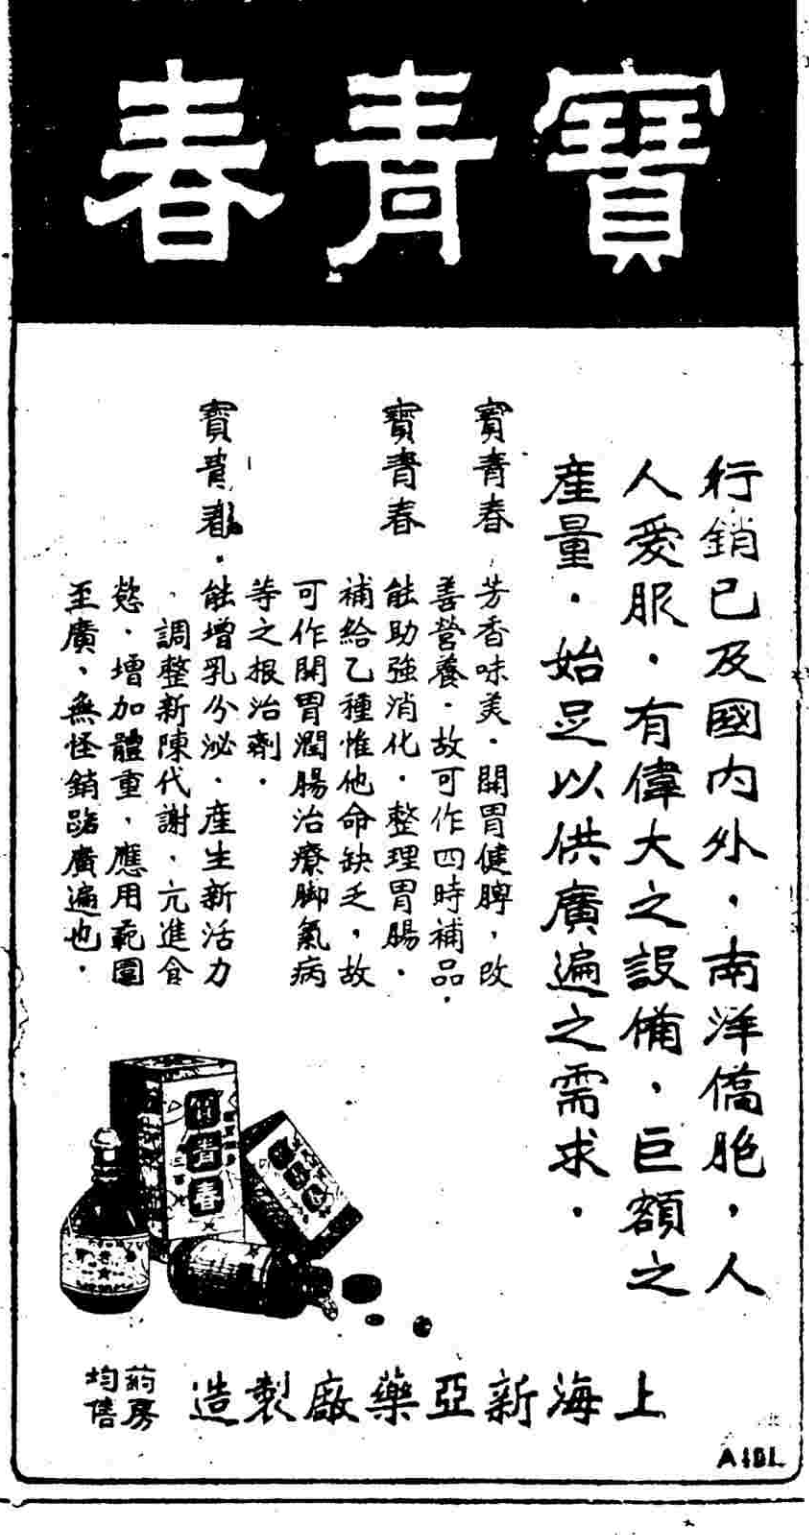 寶青春
行銷已及國內外，南洋僑胞，人
人愛服，有偉大之設備，巨額之
產量，始足以供廣遍之需求。
寶青春 芳香味美，開胃健脾，改
善營養，故可作四時補品。
寶青春 能助強消化，整理胃腸，
補給乙種惟他命缺乏，故
可作開胃潤腸治療脚氣病
等之根治劑。
寶青春 能增乳分泌，產生新活力
，調整新陳代謝，亢進食
慾，增加體重，應用範圍
至廣，無怪銷路廣遍也。
青春
上海新亞藥廠製造
葯房
均售